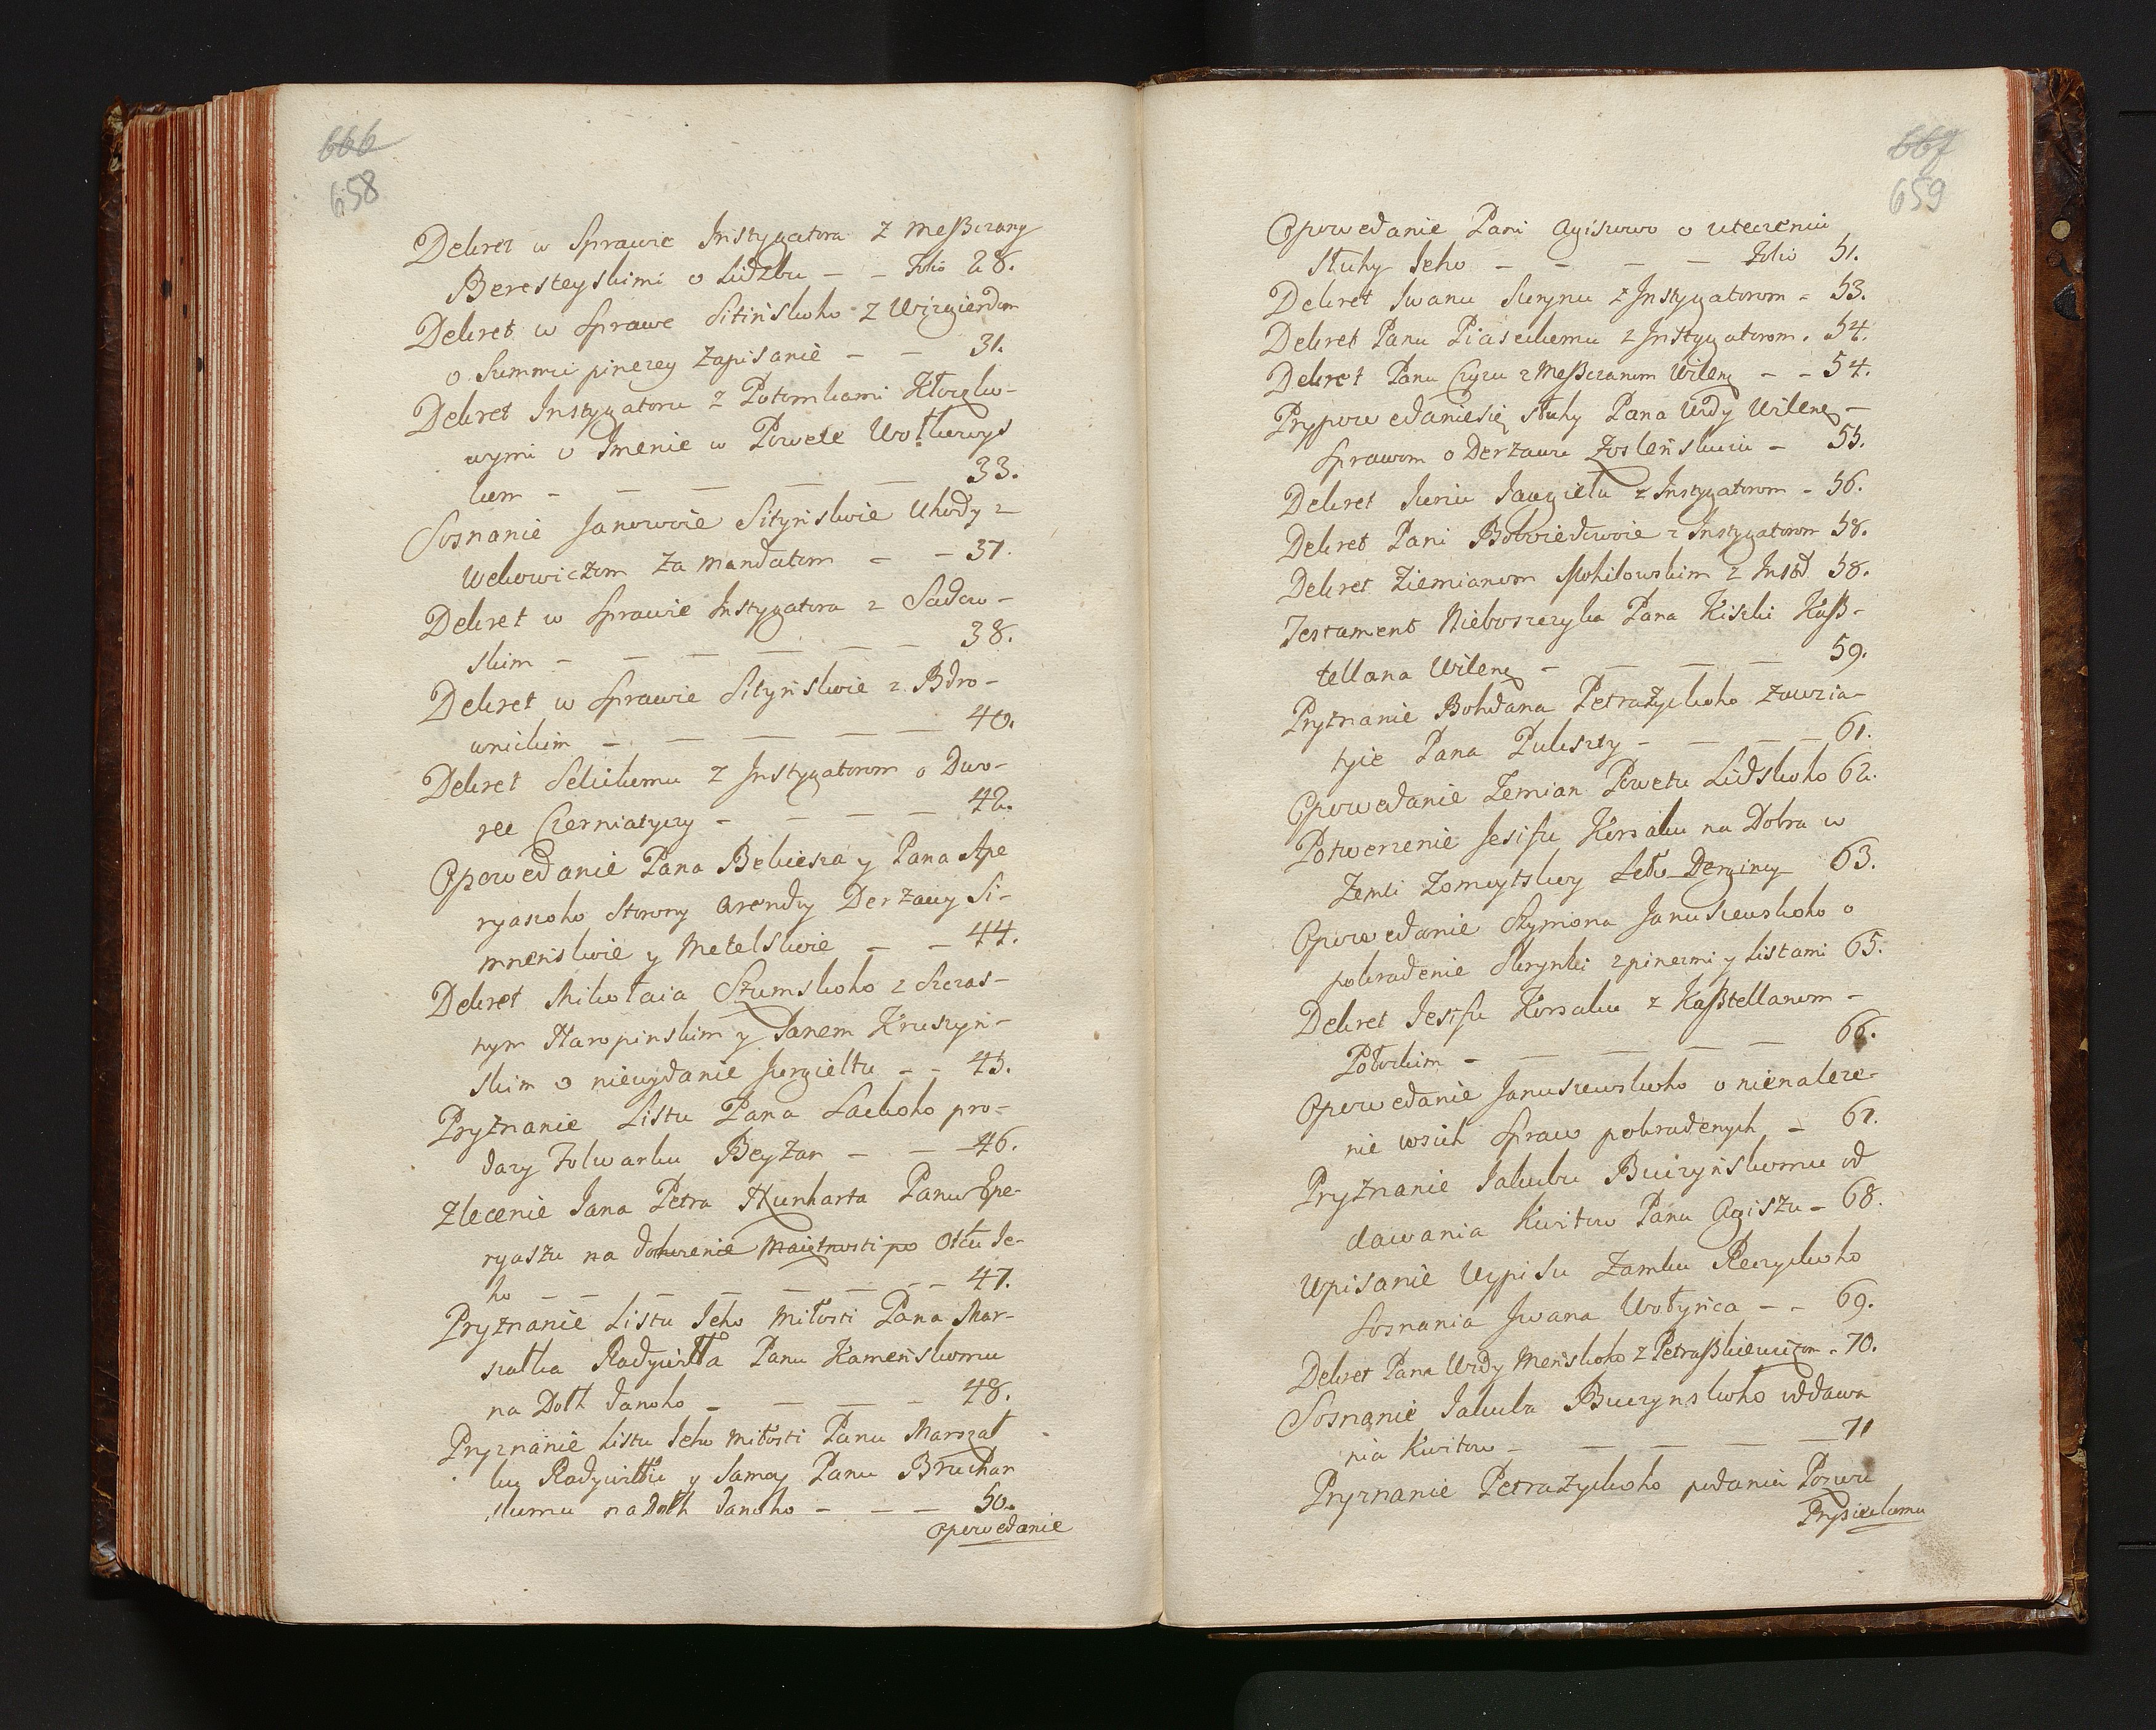 666
658
Dekret w Sprawie Instygatora z Meßczany
Beresteyskimi o Lidzbu - - Folio 28.
Dekret w Sprawe Sitińskoho z Wizgierdom
o Summu pinezey zapisanie - - 31.
Dekret Instygatoru z Potomkami
wymi o Imenie w Powete Wołkowys
kom - - - - - 33.
Sosnanie Janowoie Sityńskoie Uhody z
Wekowiczom za mandatom - - 37.
Dekret w Sprawie Instygatora z Sadow-
skim - - - - - - 38.
Dekret w Sprawie Sityńskoie z Bdro-
wnickim - - - - - 40.
Dekret Selickomu z Instygatorom o Dwo-
rec Czerniatyczy - - - - 42.
Opowedanie Pana Bekiesza y Pana Ape
ryaszoho Storony arendy Derzawy Si-
mnenskoie y Metelskoie - - 44.
Dekret Mikołaia Szumskoho z Szczas-
nym Haropinskim y Panem Kruszyn-
skim o niewydanie Jurgieltu - - 45.
Pryznanie Listu Pana Lackoho pro-
dazy Folwarku Beyzan - - 46.
Zlecenie Jana Petra Kunharta Panu Epe-
ryaszu na dohnenie Maiętnosti po Otcu Je-
ho - - - - - - - 47.
Pryznanie Listu Jeho Miłosti Pana Mar-
szałka Radziwiłła Panu Kamenskomu
na Dołh danoho - - - - 48.
Pryznanie Listu Jeho Miłosti Panu Marszał
ku Radziwiłłu y Samoy Panu Bruchan
skomu na Dołh danoho - - - 50.
Opowedanie
667
659
Opowedanie Pani Agiszowo o uteczeniu
Słuhy Jeho - - - - Folio 51.
Dekret Iwanu Surynu z Instygatorom - 53.
Dekret Panu Piaseckomu z Instygatorom. 54.
Dekret Panu Czyzu z Meßczanom Wileng - - 54.
Prypowedaniesię słuhy Pana Wdy Wileng -
Sprawom o Derzawu Zoslenskuiu - 55.
Dekret Juriu Jawgielu z Instygatorom - 56.
Dekret Pani Bobviedowoie z Instygatorom 58.
Dekret Ziemianom Mohilowskim z Instd 58.
Testament Nieboszczyka Pana Kiszki Kaß-
tellana Wileng - - - - 59.
Pryznanie Bohdana Petrazyckoho zawzia-
tyie Pana Pukszty - - - - 61.
Opowedanie Zemian Powetu Lidskoho 62.
Potwerzenie Jesifu Korsaku na Dobra w
Zemli Zomoytskoy Seło Derginy 63.
Opowedanie Szymona Januszewskoho o
pokradenie Skrynki z pinezmi y Listami 65.
Dekret Jesifu Korsaku z Kaßtellanom -
Połockim - - - - - 66.
Opowedanie Januszewskoho o nienaleze-
nie wsich Spraw pokradenych - 67.
Pryznanie Jakubu Buczyńskomu od
dawania Kwitow Panu Agiszu - 68.
Upisanie Wypisu Zamku Reczyckoho
Sosnania Iwana Wołyńca - - 69.
Dekret Pana Wrdy Menskoho z Petraßkiewiczom - 70.
Sosnanie Jakuba Buczynskoho oddawa
nia Kwitow - - - - - 71
Pryznanie Petrazyckoho podania Pozwu
Prysieckomu